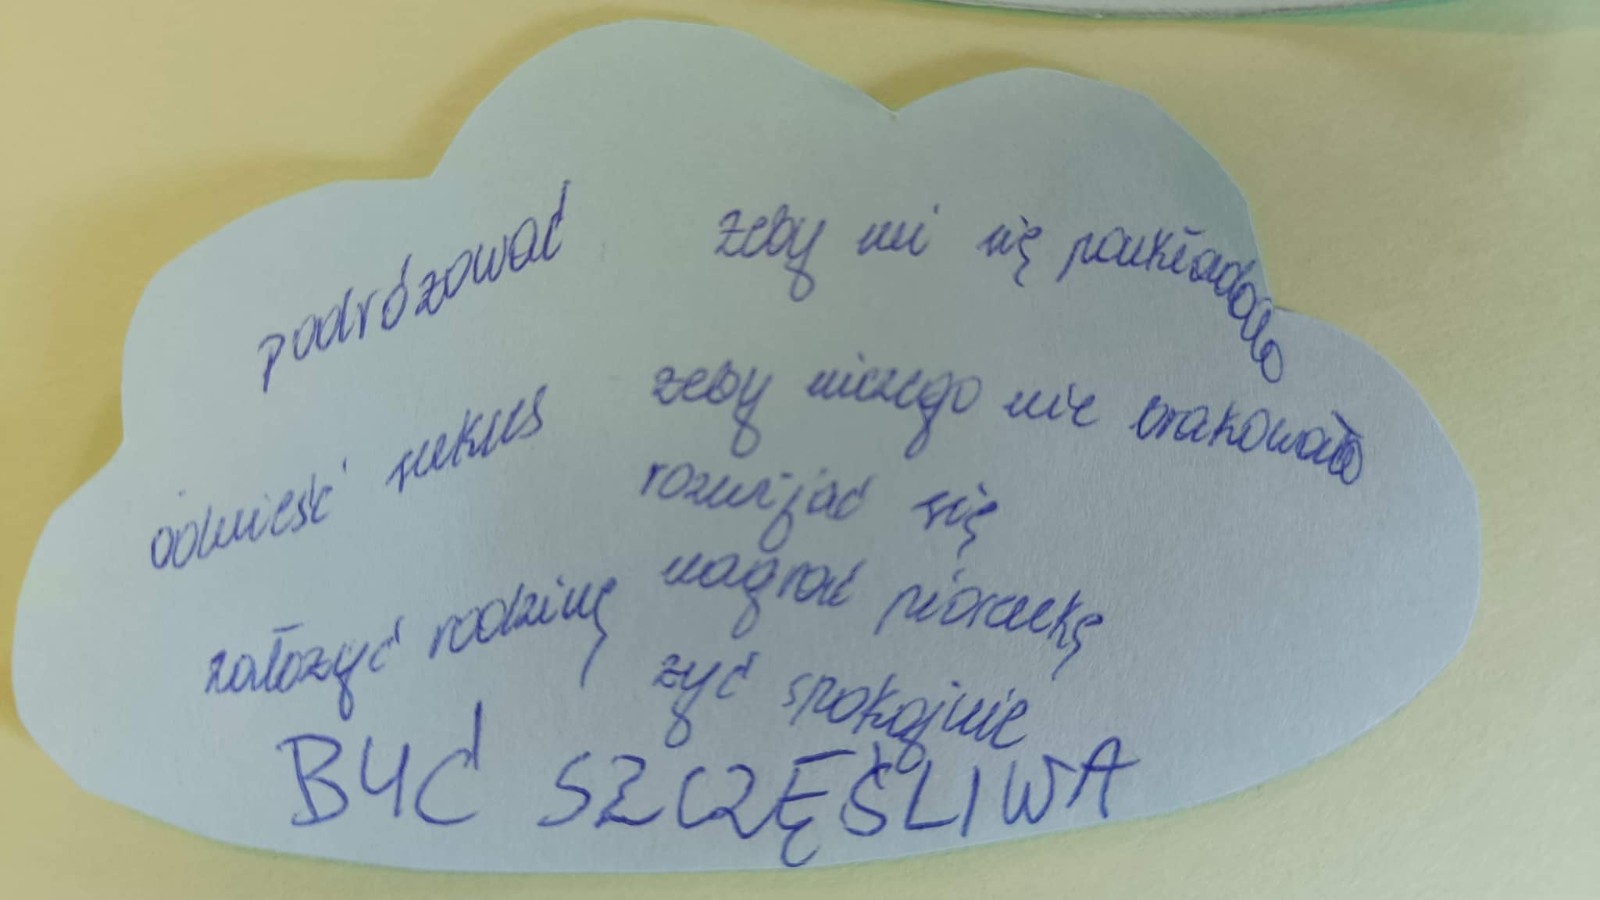 podróżować
odnieść sukces
założyć rodzinę
żeby mi się poukładało
żeby niczego nie brakowało
rozwijać się
nagrać piosenkę
żyć spokojnie
BYĆ SZCZĘŚLIWA